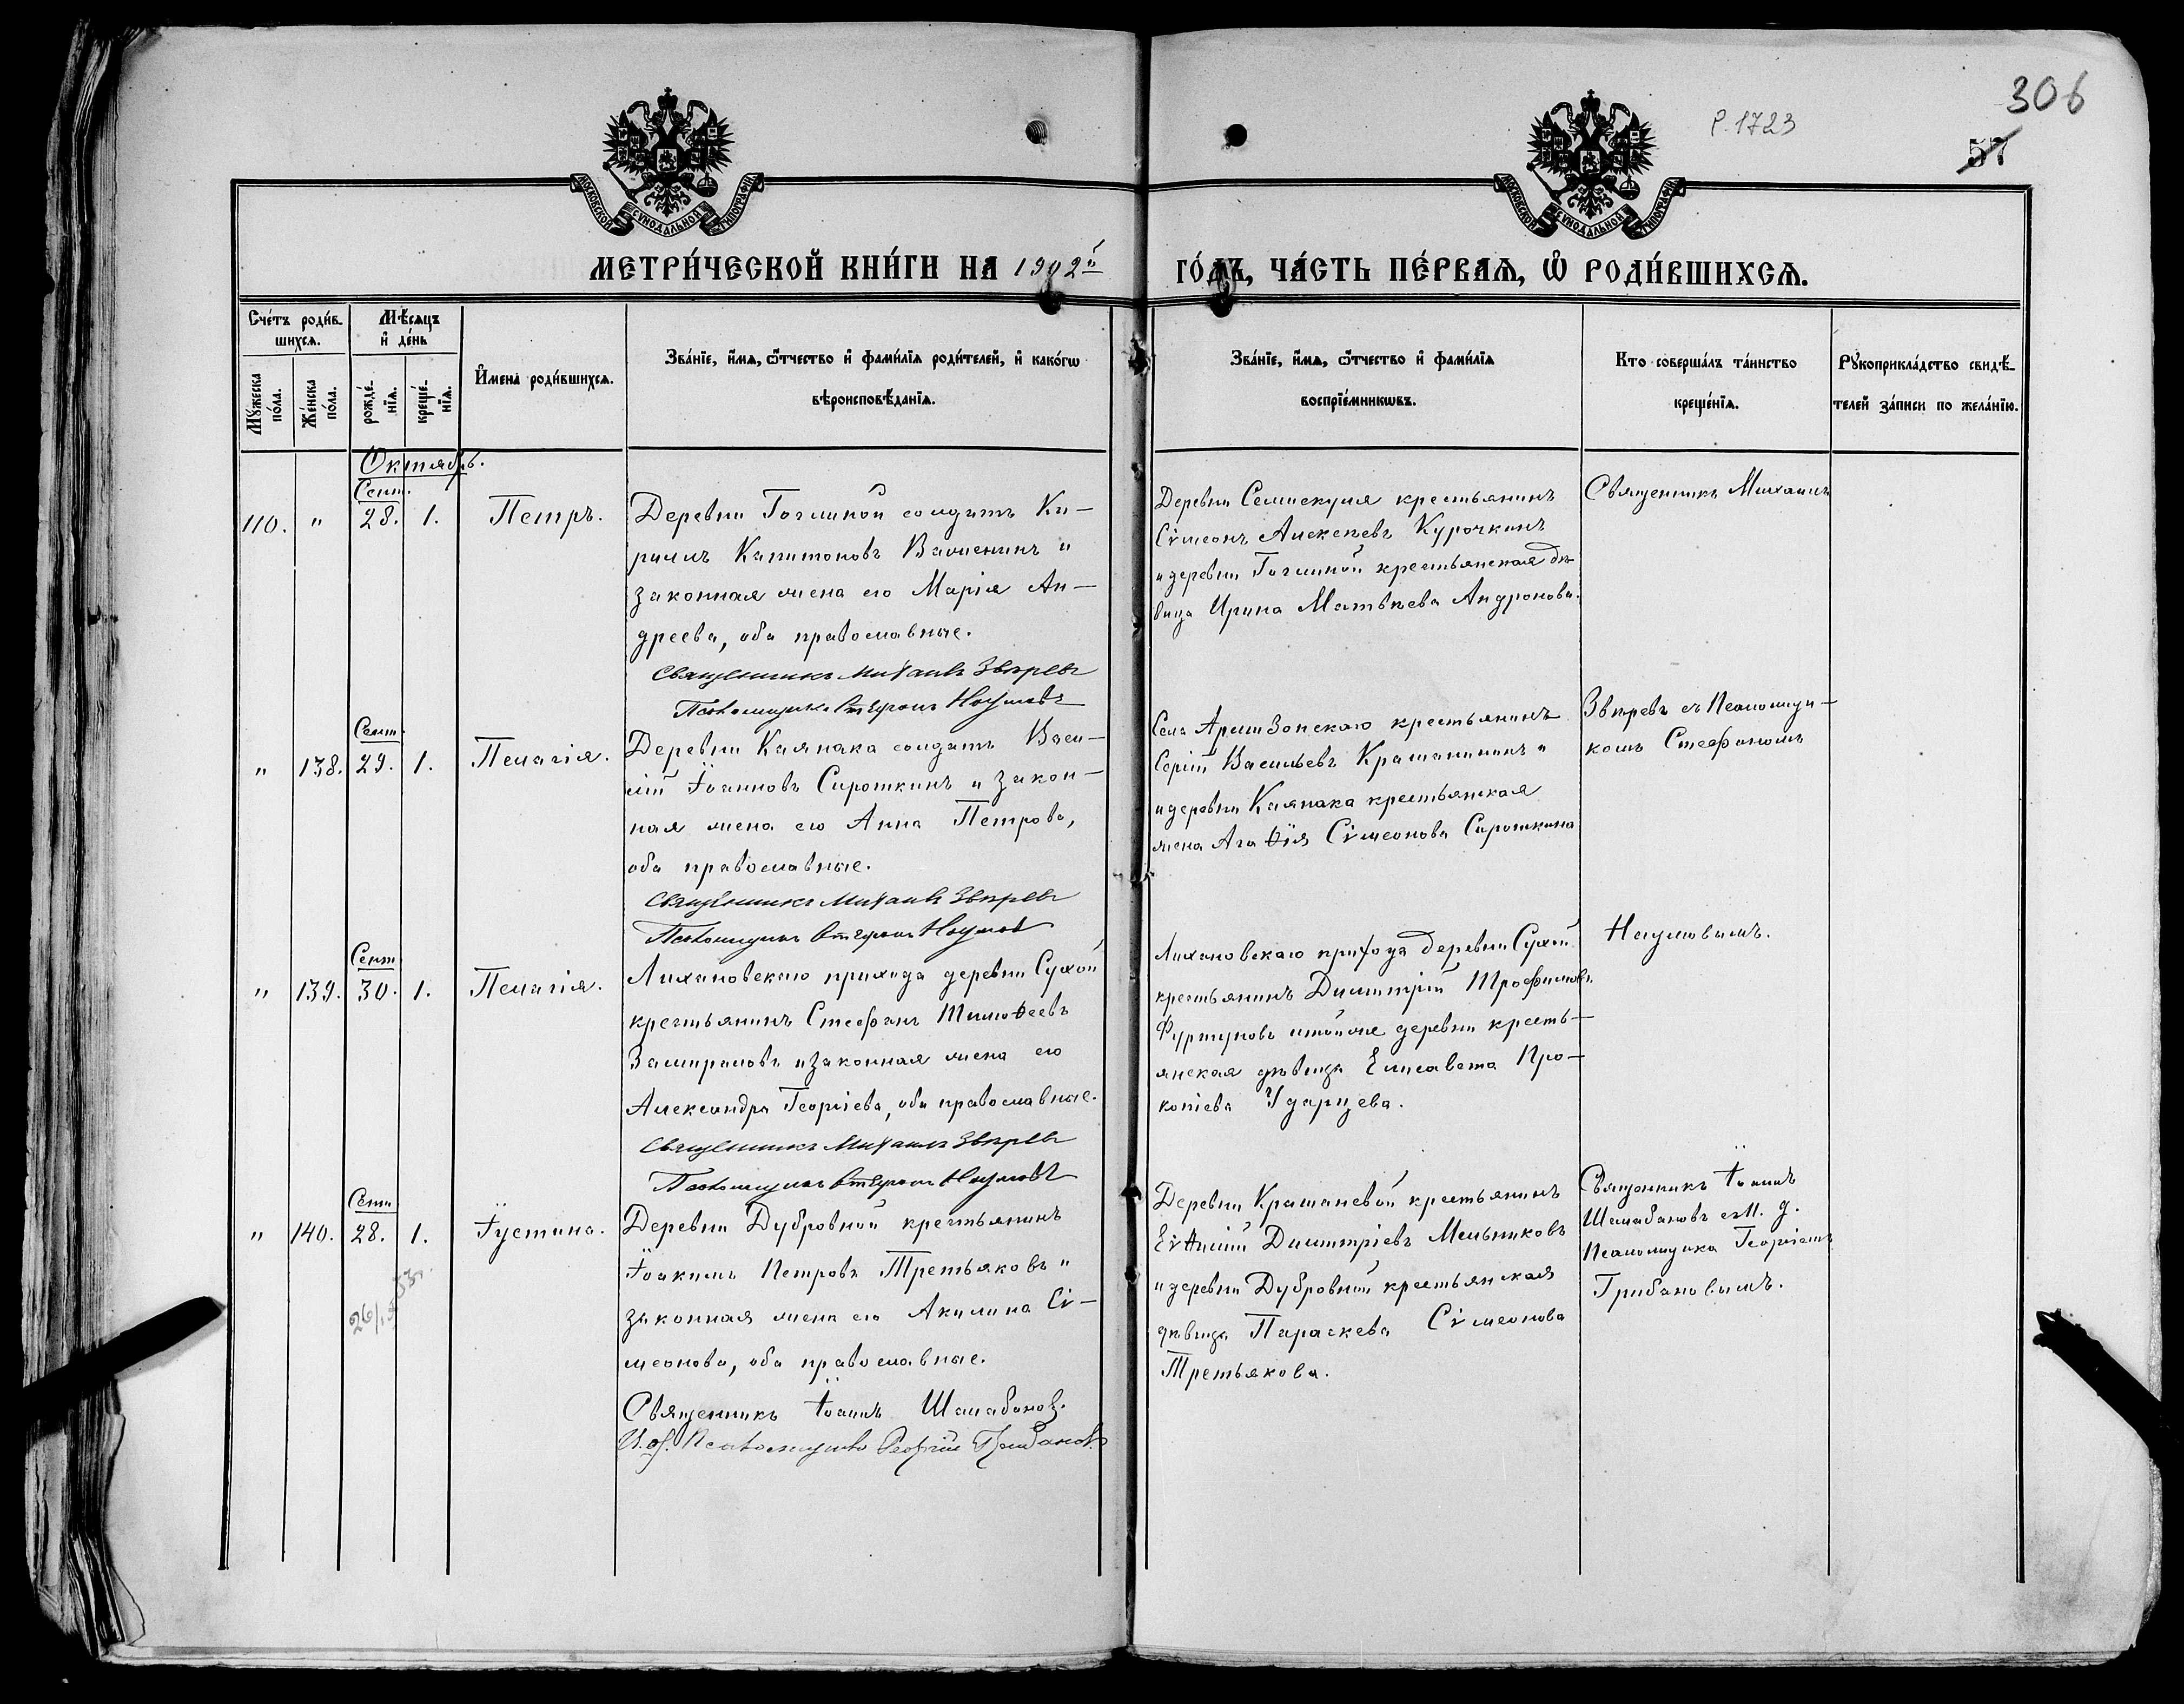 306
Р. 1723
57
МОСКОВСКОЙ СУНОДАЛЬНОЙ ТИПОГРАФІИ
МОСКОВСКОЙ СУНОДАЛЬНОЙ ТИПОГРАФІИ
МЕТРИ́ЧЕСКОЙ КНИ́ГИ НА 1902й ГО́ДЪ, ЧА́СТЬ ПЕ́РВАЯ, Ѽ РОДИ́ВШИХСЯ.
Сче́тъ роди́в-
шихся.
Му́жеска по́ла.
Же́нска по́ла.
Мѣ́сяцъ
и҆ де́нь
рожде́-
нїя.
креще́-
нїя.
И҆мена̀ роди́вшихся.
Зва́нїе, и҆́мя, ѻ҆́тчество и҆ фами́лїя роди́телей, и҆ како́гѡ
вѣроисповѣ́данїя.
Зва́нїе, и҆́мя, ѻ҆́тчество и҆ фами́лїя
воспрїе́мникѡвъ.
Кто соверша́лъ та́инство
креще́нїя.
Рꙋкоприкла́дство свидѣ́-
телей за́писи по жела́нїю.
Октябрь.
Сент.
110. " 28. 1. Петръ.
Деревни Гоглиной солдатъ Ки-
риллъ Капитоновъ Ваменинъ и
законная жена его Марія Ан-
дреева, оба православные.
Священникъ Михаилъ Звѣревъ
Псаломщикъ Стефанъ Наумовъ
Деревни Семискуля крестьянинъ
Сѵмеонъ Алексѣевъ Курочкинъ
и деревни Гоглиной крестьянская дѣ-
вица Ирина Матвѣева Андронова.
Священникъ Михаилъ
Сент.
" 138. 29. 1. Пелагія.
Деревни Каянака солдатъ Васи-
лій Іоанновъ Сироткинъ и закон-
ная жена его Анна Петрова,
оба православные.
Священникъ Михаилъ Звѣревъ
Псаломщикъ Стефанъ Наумовъ
Села Армизонскаго крестьянинъ
Сергій Васильевъ Крашанининъ и
и деревни Каянака крестьянская
жена Агаѳія Сѵмеонова Сироткина
Звѣревъ съ Псаломщи-
комъ Стефаномъ
Сент.
" 139. 30. 1. Пелагія.
Лихановскаго прихода деревни Сухой
крестьянинъ Стефанъ Тимоѳеевъ
Замираловъ и законная жена его
Александра Георгіева, оба православные.
Священникъ Михаилъ Звѣревъ
Псаломщикъ Стефанъ Наумовъ
Лихановскаго прихода деревни Сухой
крестьянинъ Димитрій Трофимовъ
Фуртуновъ и той же деревни кресть-
янская дѣвица Елисавета Про-
копіева Ударцева.
Наумовымъ.
Сент.
" 140. 28. 1. Іустина.
Деревни Дубровной крестьянинъ
Іоакимъ Петровъ Третьяковъ и
законная жена его Акилина Сѵ-
меонова, оба православные.
Священникъ Іоаннъ Шалабановъ.
И. д. Псаломщика Георгій Грибановъ
Деревни Крашаневой крестьянинъ
Еѵѳимій Димитріевъ Мельниковъ
и деревни Дубровной крестьянская
дѣвица Параскева Сѵмеонова
Третьякова.
Священникъ Іоаннъ
Шалабановъ съ И. д.
Псаломщика Георгіемъ
Грибановымъ.